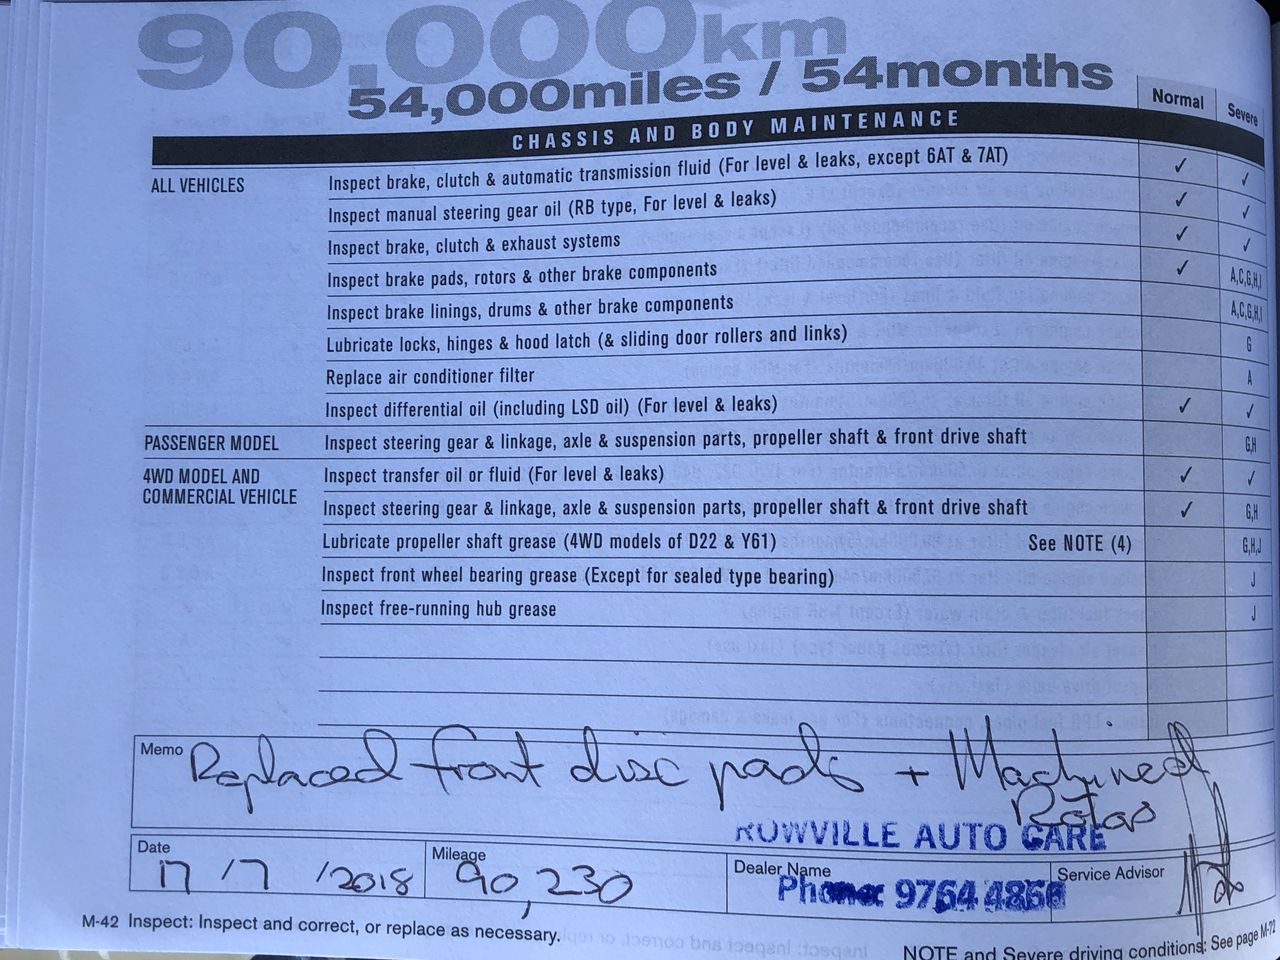 90,000km
54,000miles / 54months
Normal Severe
CHASSIS AND BODY MAINTENANCE
ALL VEHICLES Inspect brake, clutch & automatic transmission fluid (For level & leaks, except 6AT & 7AT) ✓ ✓
Inspect manual steering gear oil (RB type, For level & leaks) ✓ ✓
Inspect brake, clutch & exhaust systems ✓ ✓
Inspect brake pads, rotors & other brake components ✓ A,C,G,H,I
Inspect brake linings, drums & other brake components A,C,G,H,I
Lubricate locks, hinges & hood latch (& sliding door rollers and links) G
Replace air conditioner filter A
Inspect differential oil (including LSD oil) (For level & leaks) ✓ ✓
PASSENGER MODEL Inspect steering gear & linkage, axle & suspension parts, propeller shaft & front drive shaft G,H
4WD MODEL AND Inspect transfer oil or fluid (For level & leaks) ✓ ✓
COMMERCIAL VEHICLE Inspect steering gear & linkage, axle & suspension parts, propeller shaft & front drive shaft ✓ G,H
Lubricate propeller shaft grease (4WD models of D22 & Y61) See NOTE (4) G,H,J
Inspect front wheel bearing grease (Except for sealed type bearing) J
Inspect free-running hub grease J
Memo Replaced front disc pads + Machined
Rotas
ROWVILLE AUTO CARE
Date Mileage Dealer Name Service Advisor
17/7/2018 90,230 Phone: 9764
M-42 Inspect: Inspect and correct, or replace as necessary.
NOTE and Severe driving conditions: See page M-72